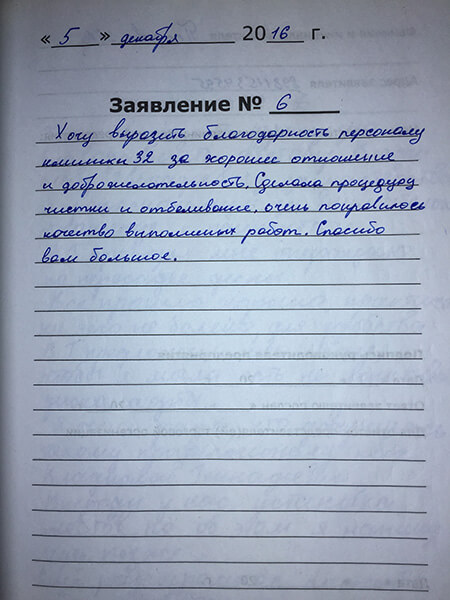 « 5 » декабря 2016 г.
Заявление № 6
Хочу выразить благодарность персоналу
клиники 32 за хорошее отношение
и доброжелательность. Сделала процедуру
чистки и отбеливание, очень понравилось
качество выполненых работ. Спасибо
вам большое.